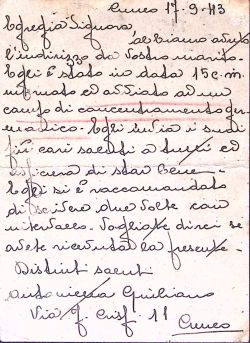 Cuneo 17.9.43
Egregia Signora,
abbiamo avuto
l'indirizzo da vostro marito.
Egli è stato in data 15 c.m.
ed avviato ad un
campo di concentramento ger-
manico. Egli invia i suoi
più cari saluti a tutti ed
di star bene.
Egli si è raccomandato
di scrivere due volte con
intervallo. Vogliate dirci se
avete ricevuto la presente.
Distinti saluti
Giuliano
Via 11
Cuneo